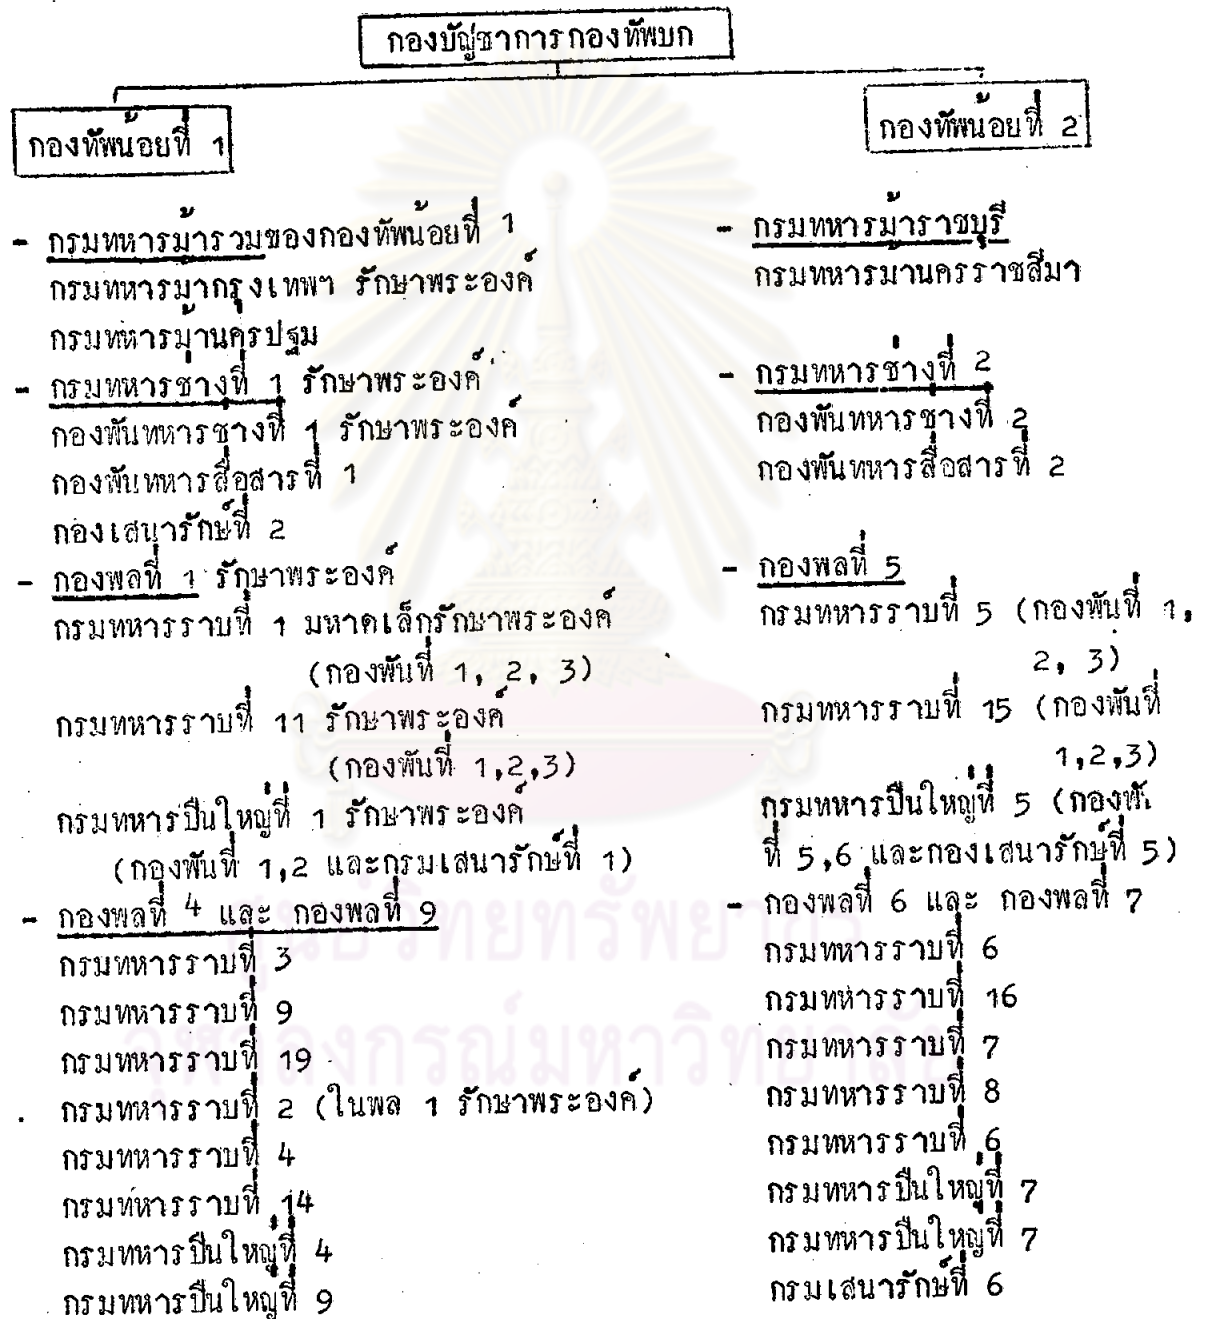 กองบัญชาการกองทัพบก
กองทัพน้อยที่ 1
- กรมทหารม้ารวมของกองทัพน้อยที่ 1
กรมทหารม้ากรุงเทพฯ รักษาพระองค์
กรมทหารม้านครปฐม
- กรมทหารช่างที่ 1 รักษาพระองค์
กองพันทหารช่างที่ 1 รักษาพระองค์
กองพันทหารสื่อสารที่ 1
กองเสนารักษ์ที่ 2
- กองพลที่ 1 รักษาพระองค์
กรมทหารราบที่ 1 มหาดเล็กรักษาพระองค์
(กองพันที่ 1, 2, 3)
กรมทหารราบที่ 11 รักษาพระองค์
(กองพันที่ 1,2,3)
กรมทหารปืนใหญ่ที่ 1 รักษาพระองค์
(กองพันที่ 1,2 และกรมเสนารักษ์ที่ 1)
- กองพลที่ 4 และ กองพลที่ 9
กรมทหารราบที่ 3
กรมทหารราบที่ 9
กรมทหารราบที่ 19
กรมทหารราบที่ 2 (ในพล 1 รักษาพระองค์)
กรมทหารราบที่ 4
กรมทหารราบที่ 14
กรมทหารปืนใหญ่ที่ 4
กรมทหารปืนใหญ่ที่ 9
กองทัพน้อยที่ 2
- กรมทหารม้าราชบุรี
กรมทหารม้านครราชสีมา
- กรมทหารช่างที่ 2
กองพันทหารช่างที่ 2
กองพันทหารสื่อสารที่ 2
- กองพลที่ 5
กรมทหารราบที่ 5 (กองพันที่ 1,
2, 3)
กรมทหารราบที่ 15 (กองพันที่
1,2,3)
กรมทหารปืนใหญ่ที่ 5 (กองพัน
ที่ 5,6 และกองเสนารักษ์ที่ 5)
- กองพลที่ 6 และ กองพลที่ 7
กรมทหารราบที่ 6
กรมทหารราบที่ 16
กรมทหารราบที่ 7
กรมทหารราบที่ 8
กรมทหารราบที่ 6
กรมทหารปืนใหญ่ที่ 7
กรมทหารปืนใหญ่ที่ 7
กรมเสนารักษ์ที่ 6
ศูนย์วิทยทรัพยากร
จุฬาลงกรณ์มหาวิทยาลัย